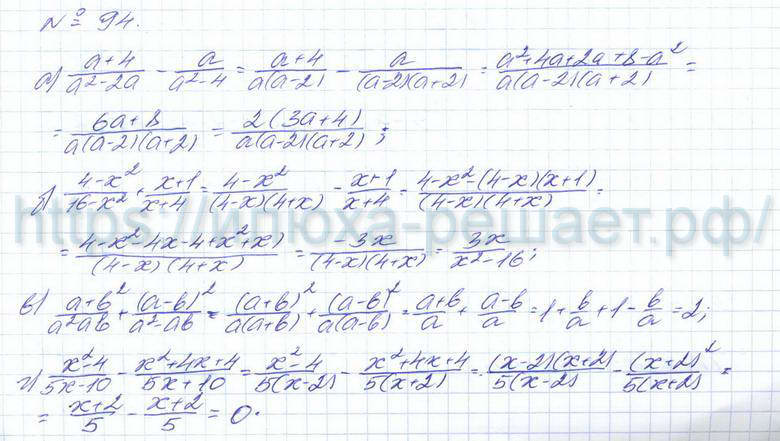 № 94.
а) (a+4)/(a²-2a) - a/(a²-4) = (a+4)/(a(a-2)) - a/((a-2)(a+2)) = (a²+4a+2a+8-a²)/(a(a-2)(a+2)) =
= (6a+8)/(a(a-2)(a+2)) = (2(3a+4))/(a(a-2)(a+2));
б) (4-x²)/(16-x²) + (x+1)/(x+4) = (4-x²)/((4-x)(4+x)) - (x+1)/(x+4) = (4-x²-(4-x)(x+1))/((4-x)(4+x)) =
https://илюха-решает.рф/
= (4-x²-4x-4+x²+x)/((4-x)(4+x)) = (-3x)/((4-x)(4+x)) = 3x/(x²-16);
в) (a+b)²/(a²ab) + (a-b)²/(a²-ab) = (a+b)²/(a(a+b)) + (a-b)²/(a(a-b)) = (a+b)/a + (a-b)/a = 1+b/a+1-b/a = 2;
г) (x²-4)/(5x-10) - (x²+4x+4)/(5x+10) = (x²-4)/(5(x-2)) - (x²+4x+4)/(5(x+2)) = ((x-2)(x+2))/(5(x-2)) - (x+2)²/(5(x+2)) =
= (x+2)/5 - (x+2)/5 = 0.